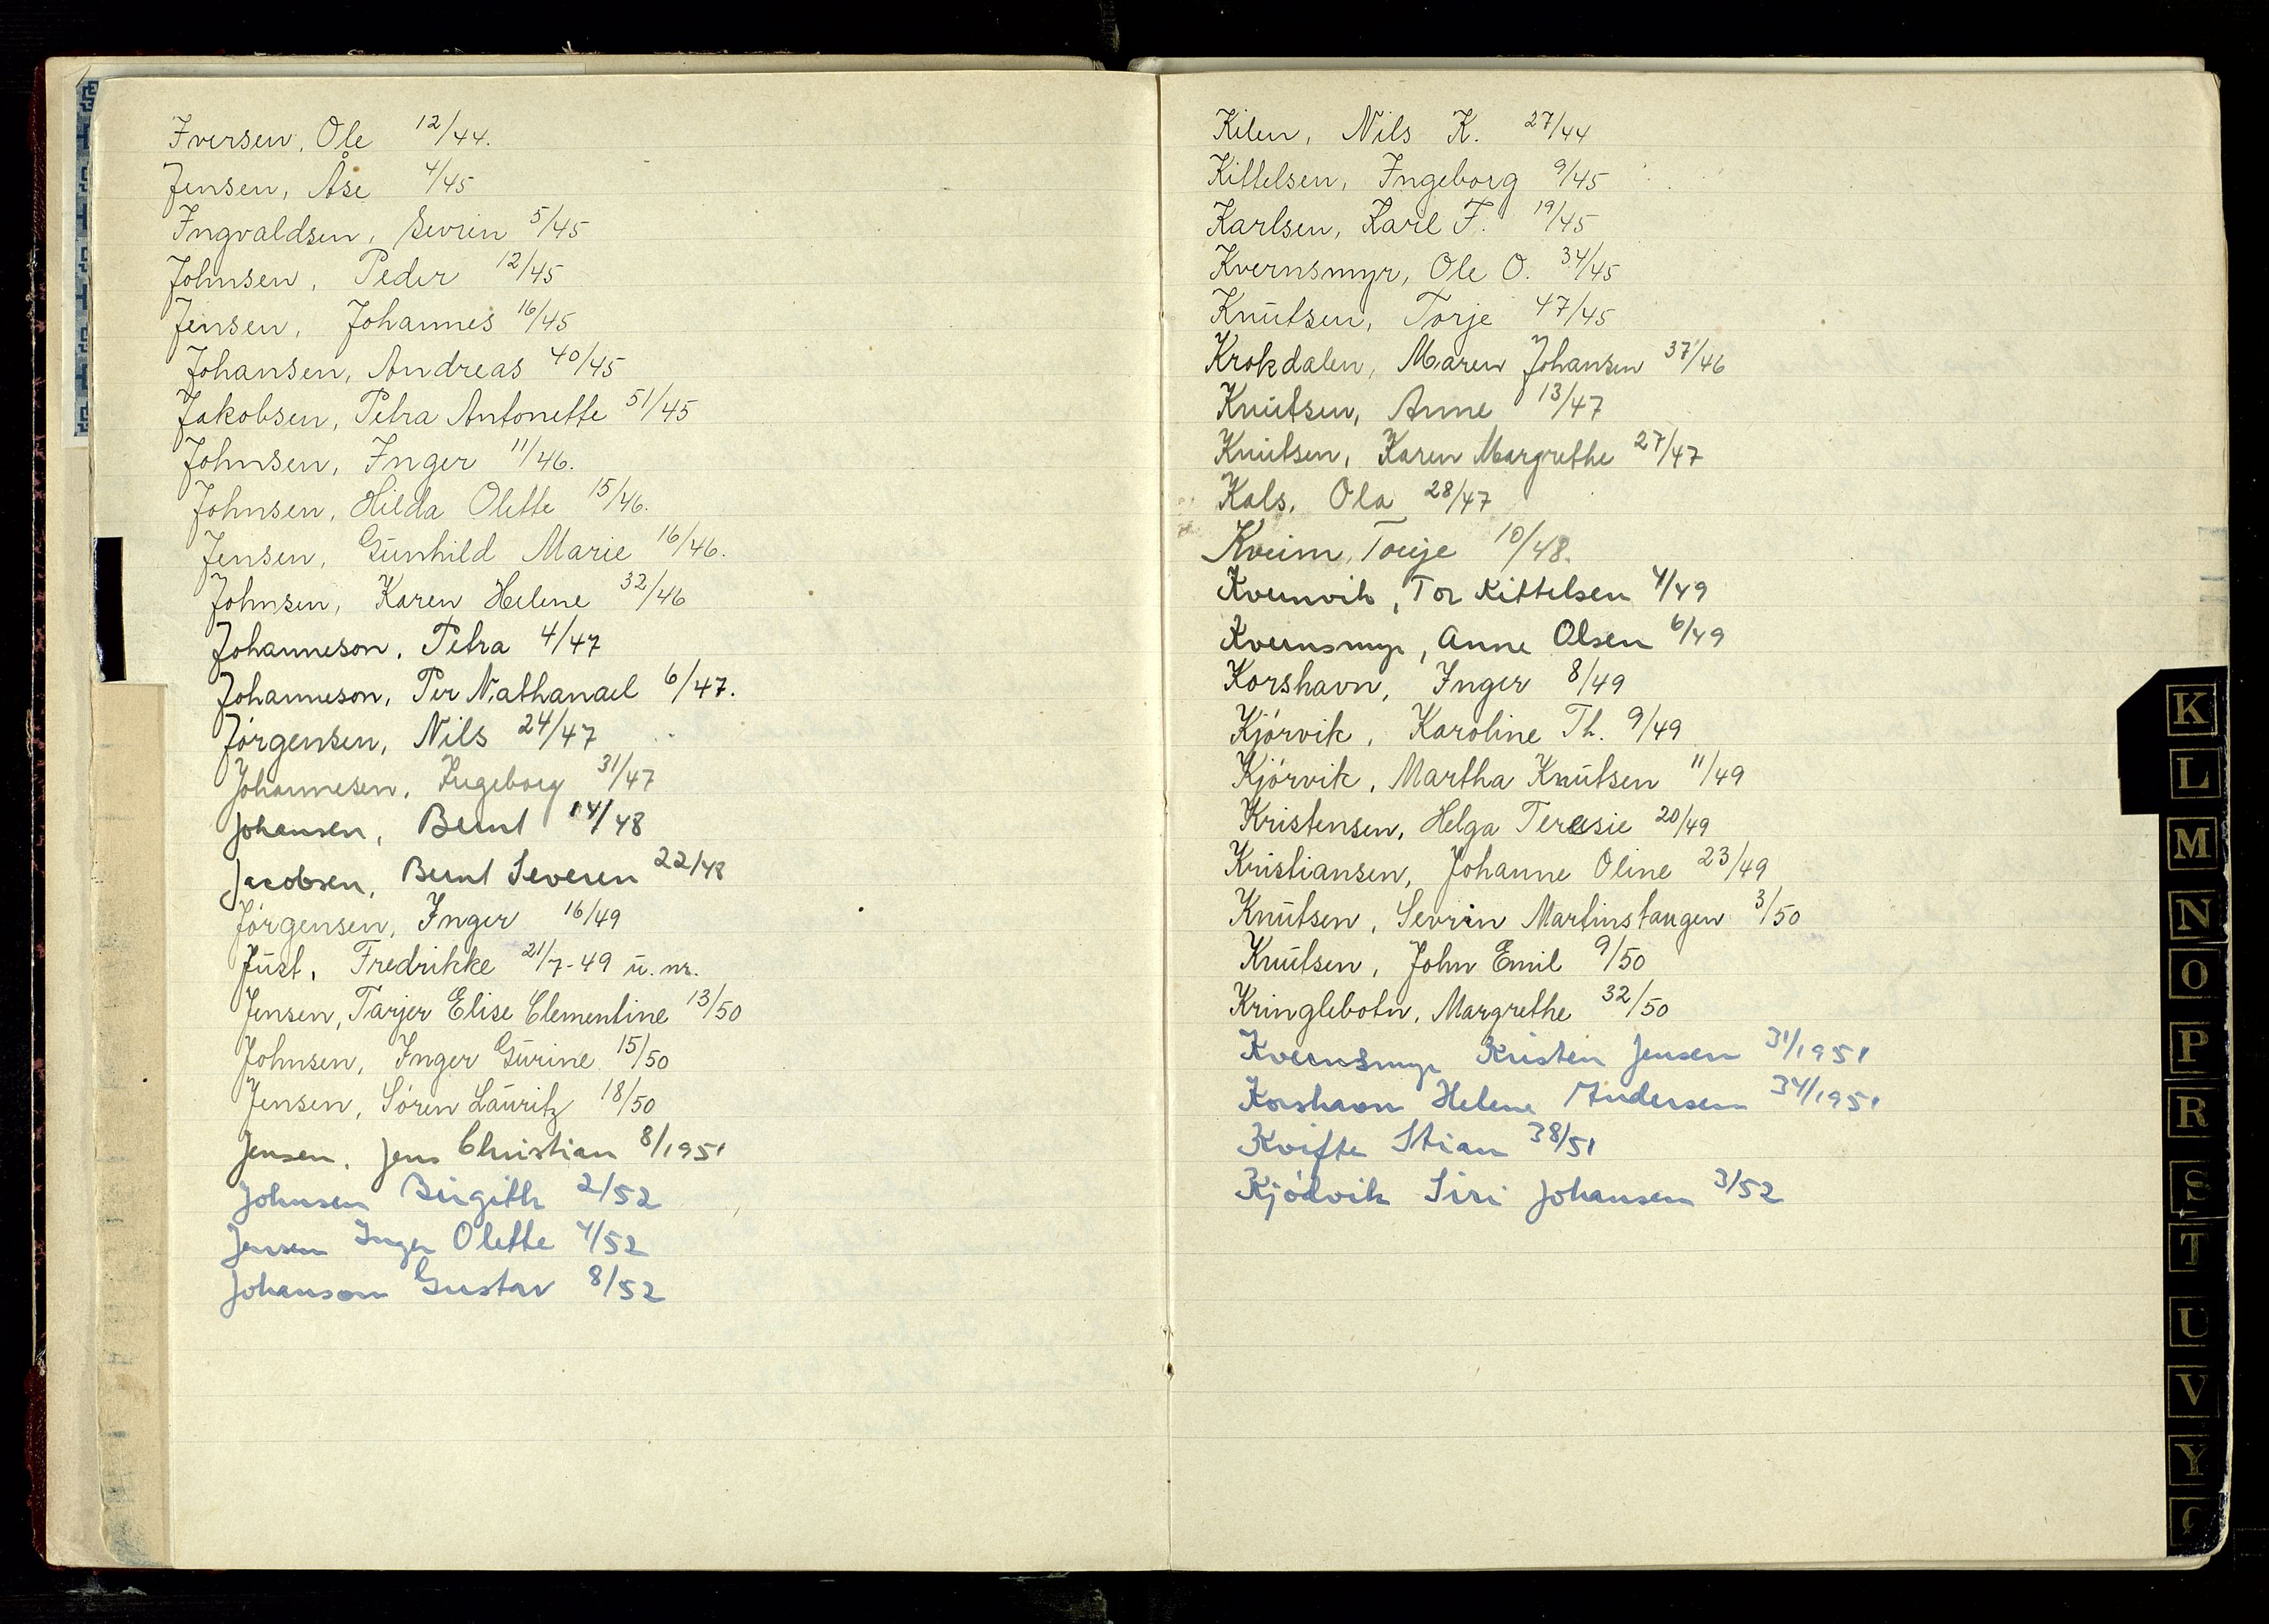 Iversen, Ole 12/44.
Jensen, Åse 4/45
Ingvaldsen, Sevrin 5/45
Johnsen, Peder 12/45
Jensen, Johannes 16/45
Johansen, Andreas 40/45
Jakobsen, Petra Antonette 51/45
Johnsen, Inger 11/46.
Johnsen, Hilda Olette 15/46.
Jensen, Gunhild Marie 16/46.
Johnsen, Karen Helene 32/46
Johanneson, Petra 4/47
Johanneson, Per Nathanael 6/47.
Jórgensen, Nils 24/47
Johannesen, Ingeborg 31/47
Johansen, Bernt 14/48
Jacobsen, Bernt Severen 22/48
Jórgensen, Inger 16/49
Just, Fredrikke 21/7-49 u. nr.
Jensen, Tarjer Elise Clementine 13/50
Johnsen, Inger Gurine 15/50
Jensen, Sóren Lauritz 18/50
Jensen, Jens Christian 8/1951
Johnsen Birgith 2/52
Jensen Inger Olette 4/52
Johanson Gustav 8/52
Kilen, Nils K. 27/44
Kittelsen, Ingeborg 9/45
Karlsen, Karl F. 19/45
Kvernsmyr, Ole O. 34/45
Knutsen, Torje 47/45
Krokdalen, Maren Johansen 37/46
Knutsen, Anne 13/47
Knutsen, Karen Margrethe 27/47
Kals, Ola 28/47
Kveim, Torje 10/48.
Kvernvik, Tor Kittelsen 4/49
Kvernsmyr, Anne Olsen 6/49
Korshavn, Inger 8/49
Kjórvik, Karoline Th. 9/49
Kjórvik, Martha Knutsen 11/49
Kristensen, Helga Teresie 20/49
Kristiansen, Johanne Oline 23/49
Knutsen, Sevrin Martinstangen 3/50
Knutsen, John Emil 9/50
Kringlebotn, Margrethe 32/50
Kvernsmyr Kristen Jensen 31/1951
Korshavn Helene Andersen 34/1951
Kvifte Stian 38/51
Kjódvik Siri Johansen 3/52
K
L
M
N
O
P
R
S
T
U
V
Y